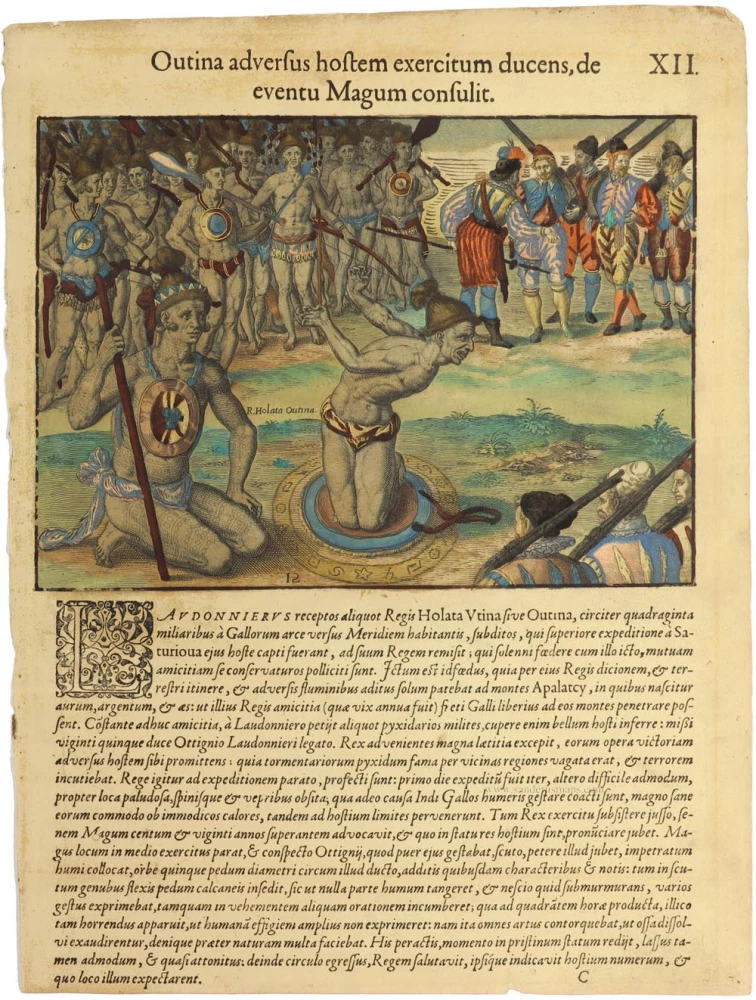 Outina adversus hostem exercitum ducens, de
XII.
eventu Magum consulit.
R. Holata Outina.
12
LAVDONNIERVS receptos aliquot Regis Holata Vtina sive Outina, circiter quadraginta
miliaribus à Gallorum arce versus Meridiem habitantis, subditos, qui superiore expeditione à Sa-
turioua ejus hoste capti fuerant, ad suum Regem remisit; qui solenni fœdere cum illo icto, mutuam
amicitiam se conservaturos polliciti sunt. Ictum est id fœdus, quia per ejus Regis dicionem, & ter-
restri itinere, & adversis fluminibus aditus solum patebat ad montes Apalatcy, in quibus nascitur
aurum, argentum, & æs: ut illius Regis amicitia (quæ vix annua fuit) freti Galli liberius ad eos montes penetrare pos-
sent. Cõstante adhuc amicitia, à Laudonniero petijt aliquot pyxidarios milites, cupere enim bellum hosti inferre: missi
viginti quinque duce Ottignio Laudonnieri legato. Rex advenientes magna lætitia excepit, eorum opera victoriam
adversus hostem sibi promittens: quia tormentariorum pyxidum fama per vicinas regiones vagata erat, & terrorem
incutiebat. Rege igitur ad expeditionem parato, profecti sunt: primo die expeditũ fuit iter, altero difficile admodum,
propter loca paludosa, spinisque & vepribus obsita, qua adeo causa Indi Gallos humeris gestare coacti sunt, magno sane
eorum commodo ob immodicos calores, tandem ad hostium limites pervenerunt. Tum Rex exercitu subsistere jusso, se-
nem Magum centum & viginti annos superantem advocavit, & quo in statu res hostium sint, pronũciare jubet. Ma-
gus locum in medio exercitus parat, & conspecto Ottignij, quod puer ejus gestabat, scuto, petere illud jubet, impetratum
humi collocat, orbe quinque pedum diametri circum illud ducto, additis quibusdam characteribus & notis: tum in scu-
tum genubus flexis pedum calcaneis insedit, sic ut nulla parte humum tangeret, & nescio quid submurmurans, varios
gestus exprimebat, tamquam in vehementem aliquam orationem incumberet; qua ad quadrãtem horæ producta, illico
tam horrendus apparuit, ut humanã effigiem amplius non exprimeret: nam ita omnes artus contorquebat, ut ossa dissol-
vi exaudirentur, denique præter naturam multa faciebat. His peractis, momento in pristinum statum redijt, lassus ta-
men admodum, & quasi attonitus: deinde circulo egressus, Regem salutavit, ipsique indicavit hostium numerum, &
quo loco illum expectarent.
C